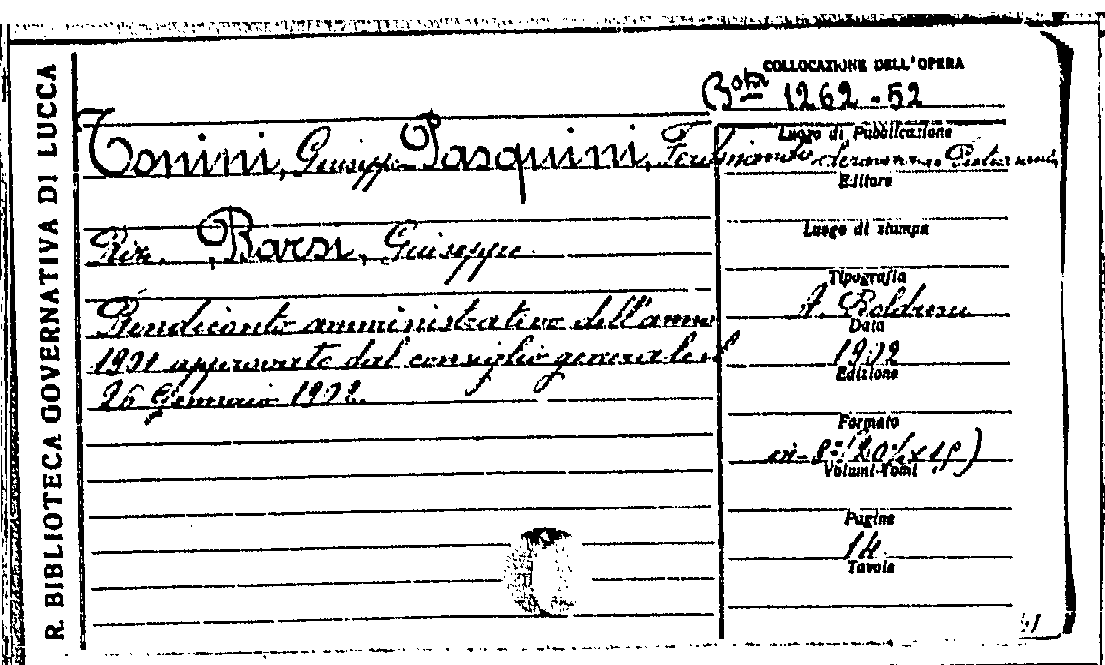 R. BIBLIOTECA GOVERNATIVA DI LUCCA
COLLOCAZIONE DELL'OPERA
Bta 1262-52
Tonini, Giuseppe Pasquini, Ferdinando
Rir. Barsi, Giuseppe
Rendiconto amministrativo dell'anno
1901 approvato dal consiglio generale il
26 Gennaio 1902.
Luogo di Pubblicazione
Editore
Luogo di stampa
Tipografia
A.
Data
1902
Edizione
Formato
in-8°
Volumi-Tomi
Pagine
14
Tavole